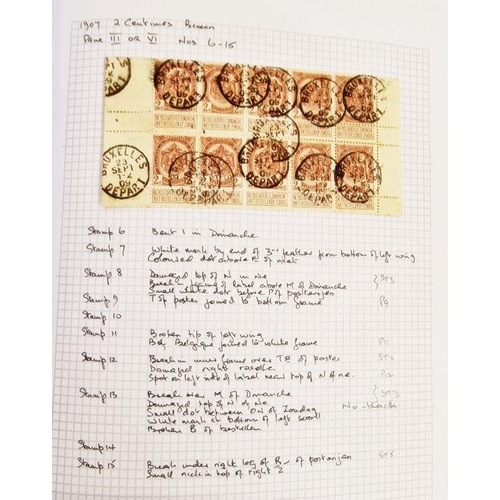 1907 2 Centimes Brown
Pane III or VI Nos 6-15
BRUXELLES
23
SEPT
1-2
09
DEPART
Stamp 6 Bent 1 in Dimanche
Stamp 7 White mark by end of 3rd feather from bottom of left wing
Coloured dot above E of niet
Stamp 8 Damaged top of N in Ne } ST3
Break in frame of label above M of Dimanche
Small white dot before P of postranjen
Stamp 9 T of postes joined to bottom frame P9
Stamp 10
Stamp 11 Broken tip of left wing
B of Belgique joined to white frame P11
Stamp 12 Break in inner frame over TE of postes ST2
Damaged right rosette
Spot on left side of label near top of N of Ne. P12
Stamp 13 Break near M of Dimanche } ST3
Damaged top of N of Ne
Small dot between ON of Zondag No-
White mark at bottom of left scroll
Broken B of bestellen
Stamp 14
Stamp 15 Break under right leg of R of postranjen ST5
Small nick in top of right 2